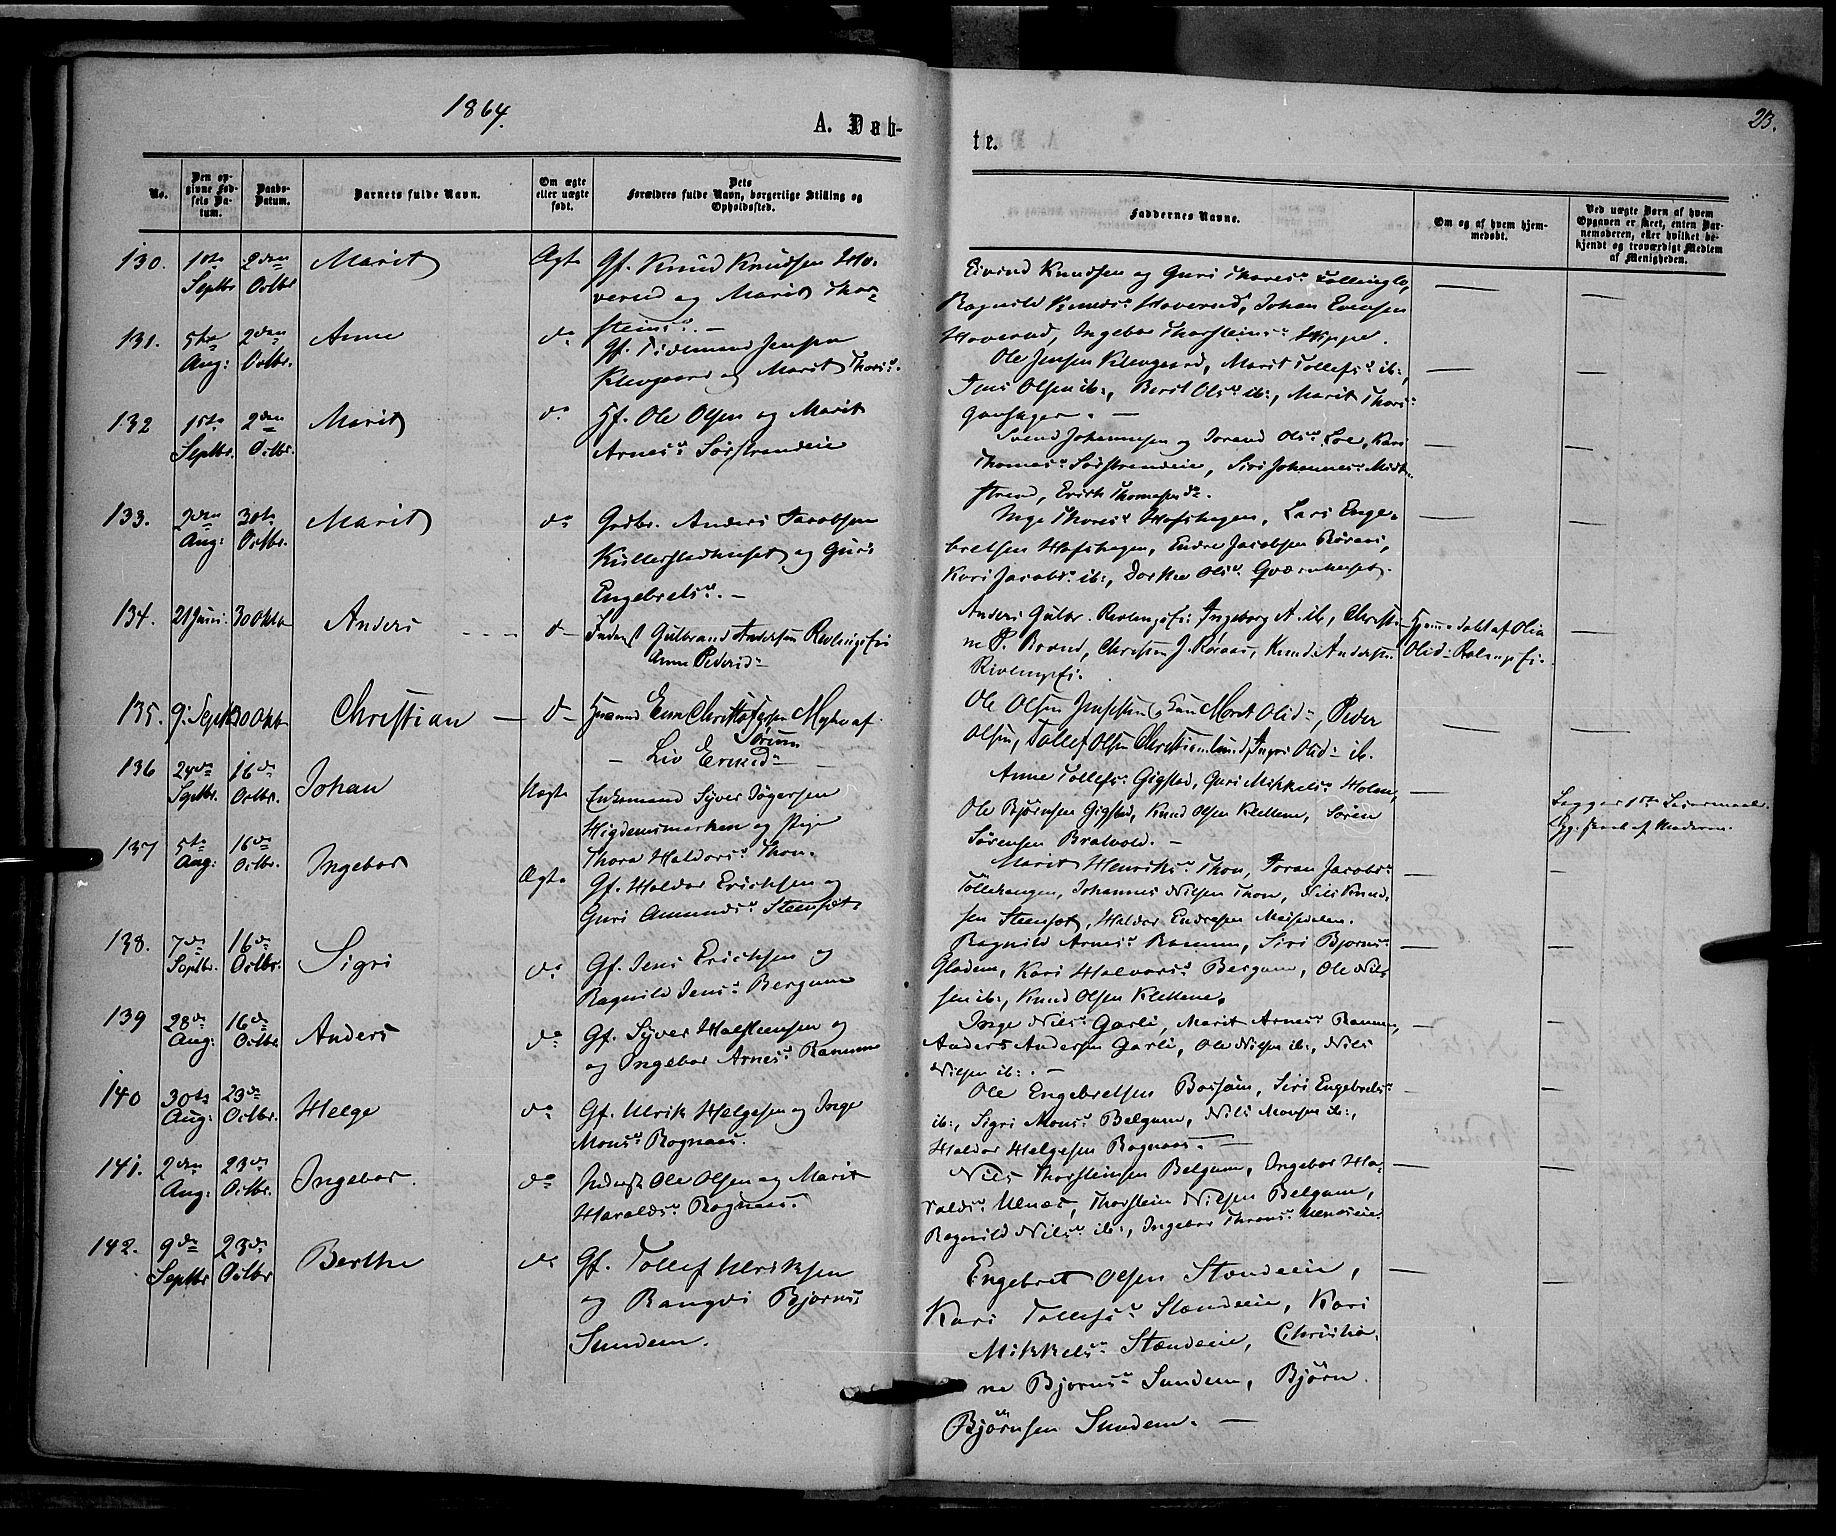 1864.
A. Døb-
te.
23.
No.
Den op-
givne Fød-
sels Da-
tum.
Daabs-
Datum.
Barnets fulde Navn.
Om ægte
eller uægte
født.
Dets
Forældres fulde Navn, borgerlige Stilling og
Opholdssted.
Faddernes Navne.
Om og af hvem hjem-
medøbt.
Ved uægte Børn af hvem
Opgaven er skeet, enten Bar-
nemoderen, eller hvilket be-
kjendt og troværdigt Medlem
af Menigheden.
130. 1ste Septbr. 2den Octbr. Marit Ægte Gf. Knud Knudsen Ho-
verud og Marit Thor-
steinsd. —
Eivind Knudsen og Guri Thoresd.
Ragnild Knudsd. Hoverud, Johan
Hoverud, Ingebor Thorsteinsd. Hippe.
131. 5te Aug: 2den Octbr. Anne do Gf. Tidemand Jensen
Klevgaard og Marit Thorisd.
Ole Jensen Klevgaard, Marit Tollefsd. ib:,
Jens Olsen ib:, Berit Olsd. ib:, Marit Thorsd.
132 1ste Septbr. 2den Octbr. Marit do Hf. Ole Olsen og Marit
Arnesd. Sørstrandeie
Svend Johannesen og Jorand Olsd. Loe, Kari
Thomasd. Sørstrandeie, Siri Johannesd. Midt-
strand, Erick Thomesen do.
133. 2den Aug: 30te Octbr. Marit do Gaardbr. Anders Jacobsen
og Guri
Engebretsd. —
Inge Thoresd. Hofshagen, Lars Enge-
bretsen Hofshagen, Endre Jacobsen Røraas,
Kari Jacobsd. ib:, Olsd. Qværnhuset.
134. 21 Juni. 30 Oktb Anders d— Inderst Gulbrand Andersen
Anne Pedersd.
Anders Gulbr. Ingeborg A. ib, Christi-
ne P. Brand, Christen J. Røraas, Knud Andersen
Hjemmedøbt af Olia
Olsd.
135. 9. Septb 30 Oktb Christian — d— Christoffersen
Sørum
— Liv
Ole Olsen Marit Olsd., Peder
Olsen, Tollef Olsen Christianlund, Ingri Olsd. ib.
136 24de Septbr. 16de Octbr. Johan Uægte Enkemand Syver
Higdemsmarken og Pige
Thora Haldorsd. Thon.
Anne Tollefsd. Gigstad, Guri Mikkelsd. Holen,
Ole Bjørnsen Gigstad, Knud Olsen Klettene, Søren
Sørensen Bratvold. —
Begges 1ste Leiermaal.
Opg. skeet af Moderen.
137 5te Aug: 16de Octbr. Ingebor Ægte Gf. Haldor Ericksen og
Guri Amundsd. Steensæt.
Marit Henriksd. Thon, Joran Jacobsd.
Tollehaugen, Johannes Nilsen Thon, Nils Knud-
sen Steensæt, Haldor Endresen
138. 7de Septbr. 16de Octbr. Sigri do Gf. Jens Ericksen og
Ragnild Jensd. Bergum
Ragnild Arnesd. Ranum, Siri Bjørnsd.
Gladem, Kari Halvorsd. Bergum, Ole Nils-
sen ib:, Knud Olsen Klettene.
139 28de Aug: 16de Octbr. Anders do Gf. Syver Halsteensen og
og Ingebor Arnesd. Ranum
Inge Nilsd. Garli, Marit Arnesd. Ranum,
Anders Andersen Garli, Ole Nilsen ib:, Nils
Nilsen ib:. —
140 30te Aug: 23de Octbr. Helge do Gf. Ulrik Helgesen og Inge
Monsd. Rognaas.
Ole Engebretsen Siri Engebretsd.
ib:, Sigri Monsd. Belgum, Nils Monsen ib:,
Haldor Helgesen Rognaas. —
141. 2den Aug: 23de Octbr. Ingebor. do Inderst Ole Olsen og Marit
Haraldsd. Rognaas.
Nils Thorsteinsen Belgum, Ingebor Ha-
raldsd. Ulnæs, Thorstein Nilsen Belgum,
Ragnild Nilsd. ib:, Ingebor Thronsd. Ulnæseie.
142. 9de Septbr 23de Octbr Berthe do Gf. Tollef Ulriksen
og Rangdi Bjørnsd.
Sundem.
Engebret Olsen Stændeeie,
Kari Tollefsd. Stændeeie, Kari
Mikkelsd. Stændeeie, Christia-
ne Bjørnsd. Sundem, Bjørn
Bjørnsen Sundem. —